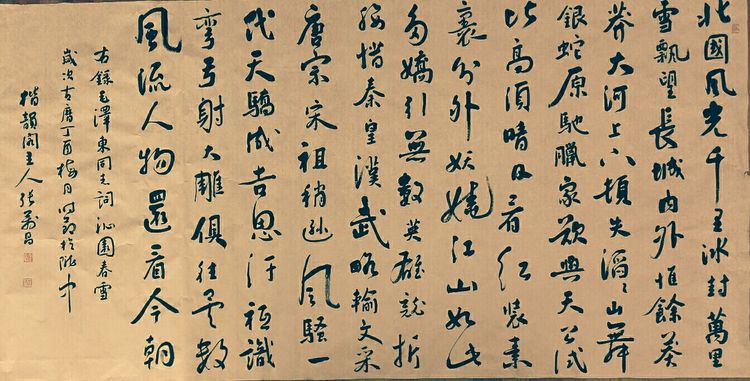 北國风光千里冰封萬里
雪飄望長城內外惟餘莽
莽大河上下頓失滔〻山舞
銀蛇原馳臘象欲與天公試
比高須晴日看紅裝素
裹分外妖嬈江山如此
多嬌引無數英雄競折
腰惜秦皇漢武略輸文采
唐宗宋祖稍遜风騷一
代天驕成吉思汗祗識
彎弓射大雕俱往矣數
風流人物還看今朝
右錄毛澤東同志詞沁園春雪
歲次古曆丁酉梅月於隴中
楷韻閣主人張萬昌